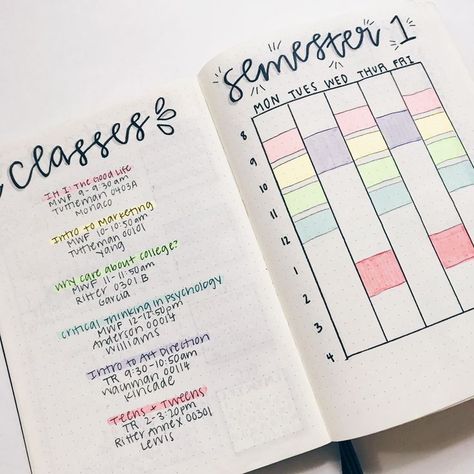 classes
IH I: The Good Life
MWF 9-9:30am
Tuttleman 0403A
Monaco
Intro to Marketing
MWF 10-10:50am
Tuttleman 00101
Yang
Why care about college?
MWF 11-11:50am
Ritter 0301B
Garcia
Critical Thinking in Psychology
MWF 12-12:50pm
Anderson 00014
Williams
Intro to Art Direction
TR 9:30-10:50am
Wachman 00114
Kincade
Teens & Tweens
TR 2-3:20pm
Ritter Annex 00301
Lewis
semester 1
MON TUES WED THUR FRI
8
9
10
11
12
1
2
3
4